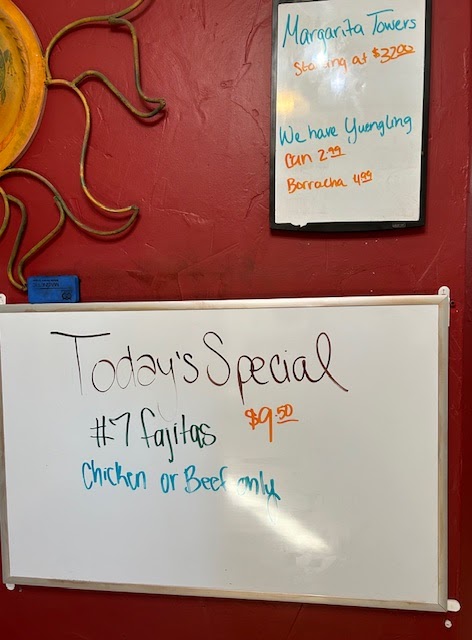 Margarita Towers
Starting at $37.00
We have Yuengling
Can 2.99
Borracha 4.99
Today's Special
#7 fajitas $9.50
Chicken or Beef only